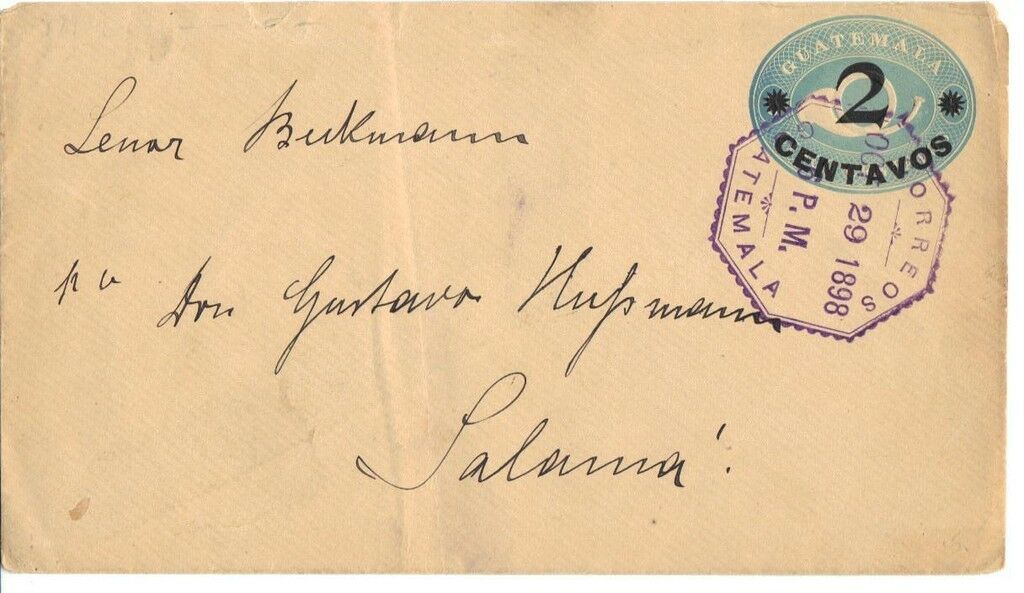 GUATEMALA
2
CENTAVOS
CORREOS
29 1898
P.M.
GUATEMALA
Senor Beekmann
p a
Don Gustavo Hußmann
Salamá.